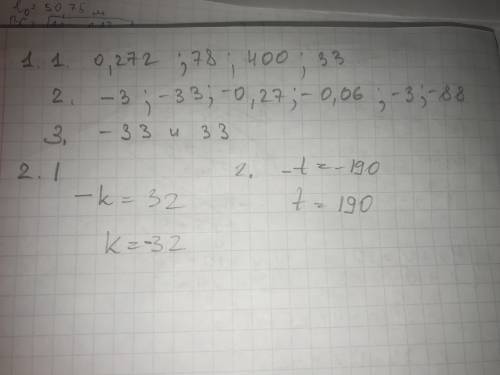 l₀ = 50 75 м
1. 1. 0,272 ; 78 ; 400 ; 33
2. -3 ; -33 ; -0,27 ; -0,06 ; -3 ; -88
3. -33 и 33
2. 1
-k = 32
k = -32
2. -t = -190
t = 190